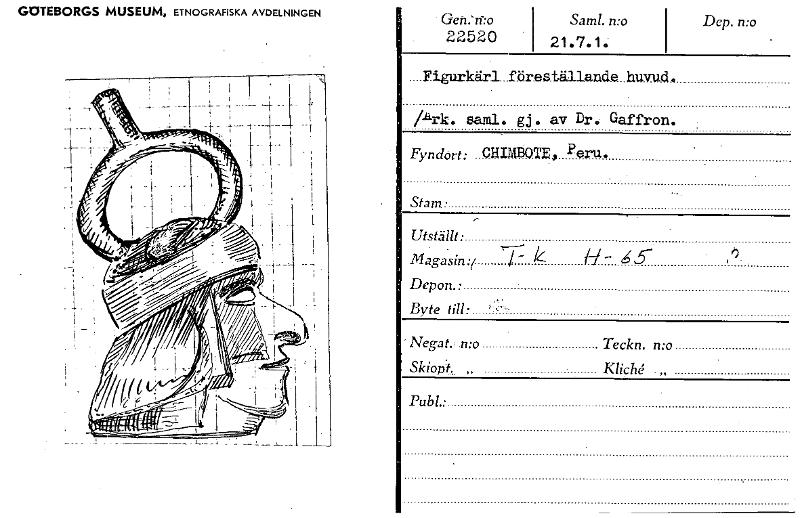 GÖTEBORGS MUSEUM, ETNOGRAFISKA AVDELNINGEN
Gen. n:o Saml. n:o Dep. n:o
22520 21.7.1.
Figurkärl föreställande huvud.
/Ark. saml. gj. av Dr. Gaffron.
Fyndort: CHIMBOTE, Peru.
Stam:
Utställt:
Magasin: T-K H-65 ?
Depon.:
Byte till:
Negat. n:o Teckn. n:o
Skiopt. „ Kliché „
Publ.: